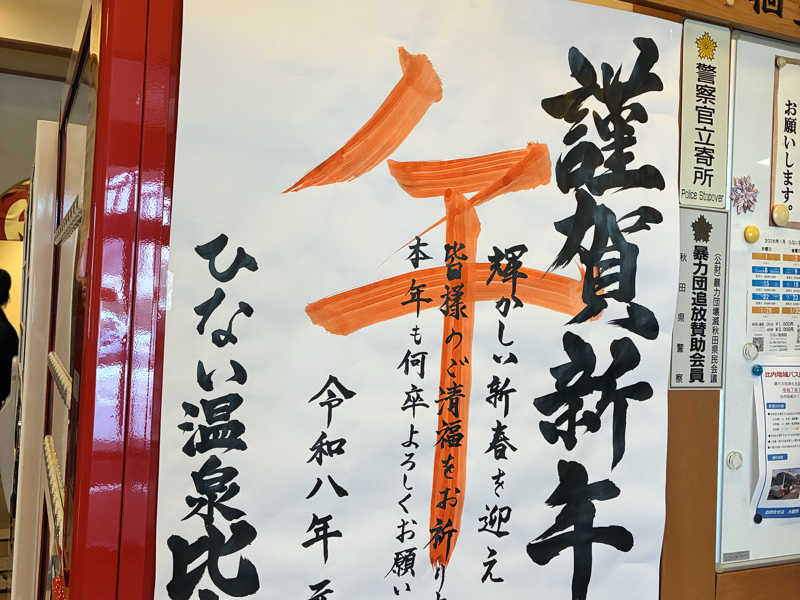 謹賀新年
午
輝かしい新春を迎え
皆様のご清福をお祈り
本年も何卒よろしくお願い
令和八年元
ひない温泉比
警察官立寄所
Police Stopover
(公財)暴力団壊滅秋田県民会議
暴力団追放賛助会員
秋田県警察
お願いします。
比内地域バス